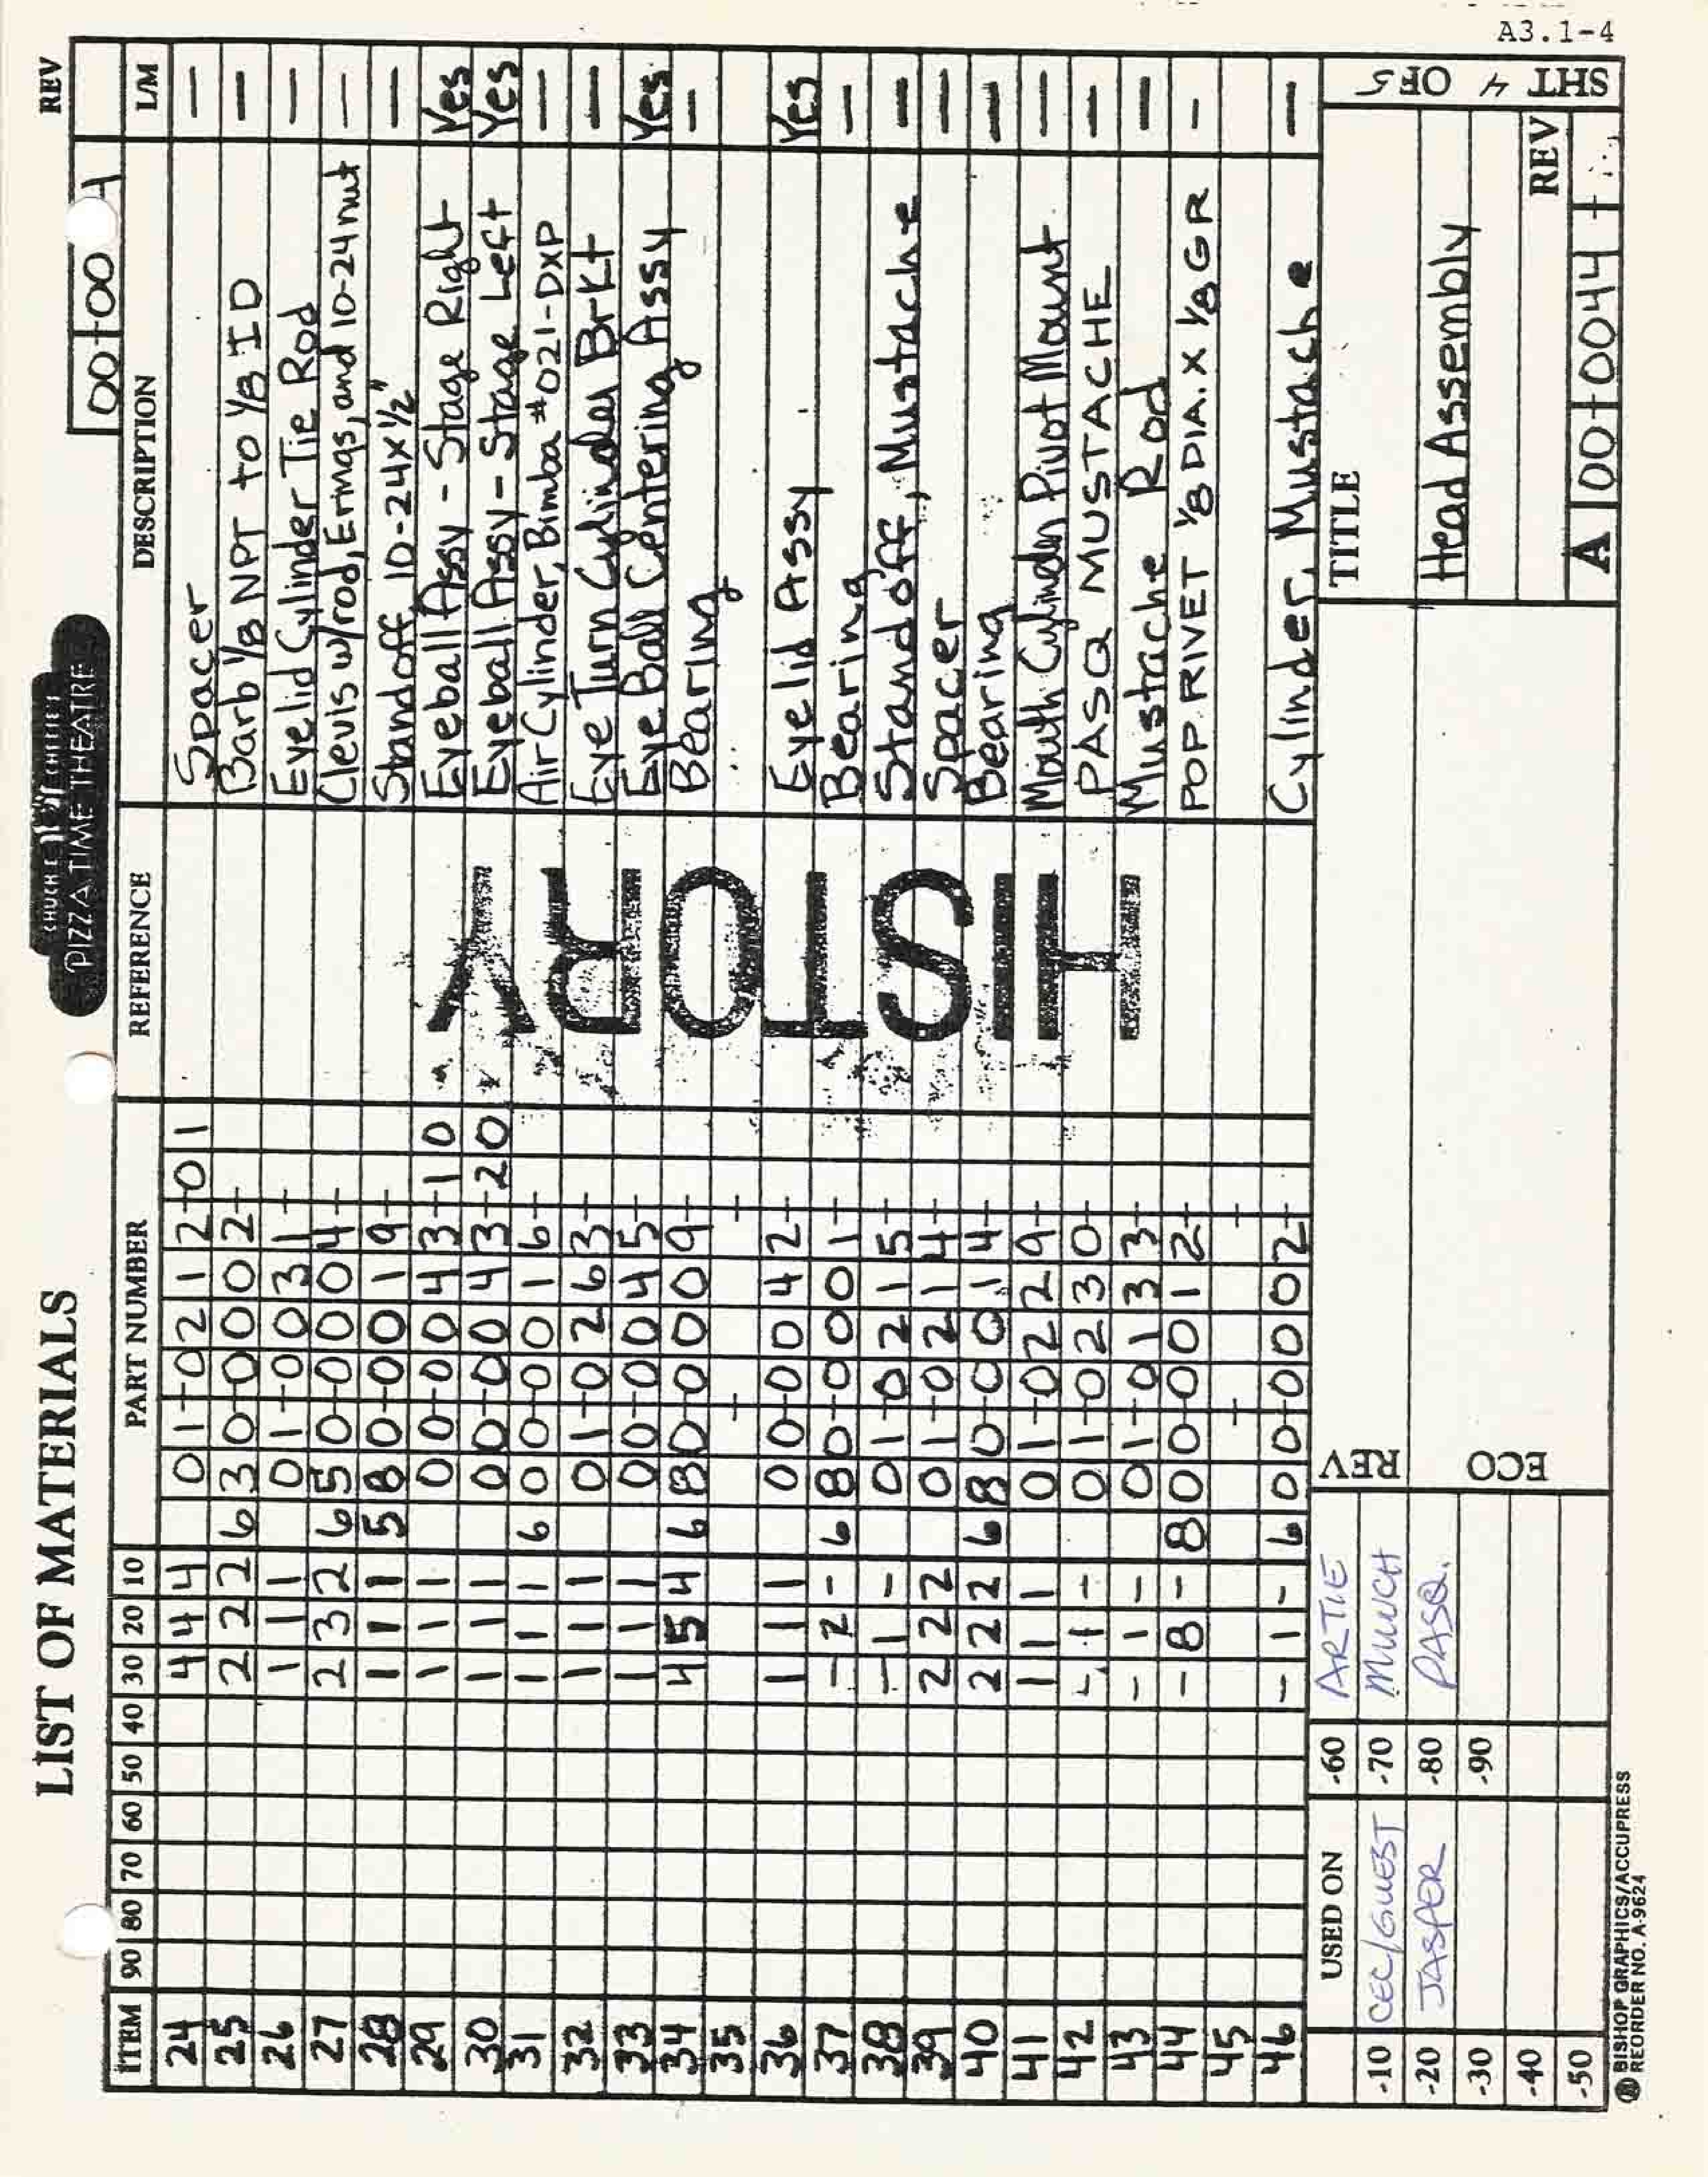 A3.1-4
LIST OF MATERIALS
CHUCK E. CHEESE'S
PIZZA TIME THEATRE
00+00 4
REV
ITEM 90 80 70 60 50 40 30 20 10 PART NUMBER REFERENCE DESCRIPTION L/M
24 4 4 4 01-0212+01 Spacer —
25 2 2 2 630-0002+ Barb 1/8 NPT to 1/8 ID —
26 1 1 1 01-0031+ Eyelid Cylinder Tie Rod —
27 2 3 2 650-0004+ Clevis w/rod, Erings, and 10-24 nut —
28 1 1 1 580-0019+ Standoff 10-24 x 1/2" —
29 1 1 1 00-0043+10 Eyeball Assy - Stage Right Yes
30 1 1 1 00-0043+20 Eyeball Assy - Stage Left Yes
31 1 1 1 600-0016+ Air Cylinder, Bimba #021-DXP —
32 1 1 1 01-0263+ Eye Turn Cylinder Brkt —
33 1 1 1 00-0045+ Eye Ball Centering Assy Yes
34 4 5 4 680-0009+ Bearing —
35 + +
36 1 1 1 00-0042+ Eyelid Assy Yes
37 - 2 - 680-0001+ Bearing —
38 - 1 - 01-0215+ Standoff, Mustache —
39 2 2 2 01-0214+ Spacer —
40 2 2 2 680-0014+ Bearing —
41 1 1 1 01-0229+ Mouth Cylinder Pivot Mount —
42 - 1 - 01-0230+ PASQ MUSTACHE —
43 - 1 - 01-0133+ Mustache Rod —
44 - 8 - 800-0012+ POP RIVET 1/8 DIA. X 1/8 GR -
45 + +
46 - 1 - 600-0002+ Cylinder, Mustache —
HISTORY
USED ON
-10 CEC/GUEST
-20 JASPER
-30
-40
-50
-60 ARTIE
-70 MUNCH
-80 PASQ.
-90
REV
ECO
TITLE
Head Assembly
A 00+0044+
REV
SHT 4 OF 5
BISHOP GRAPHICS/ACCUPRESS
REORDER NO. A-9624